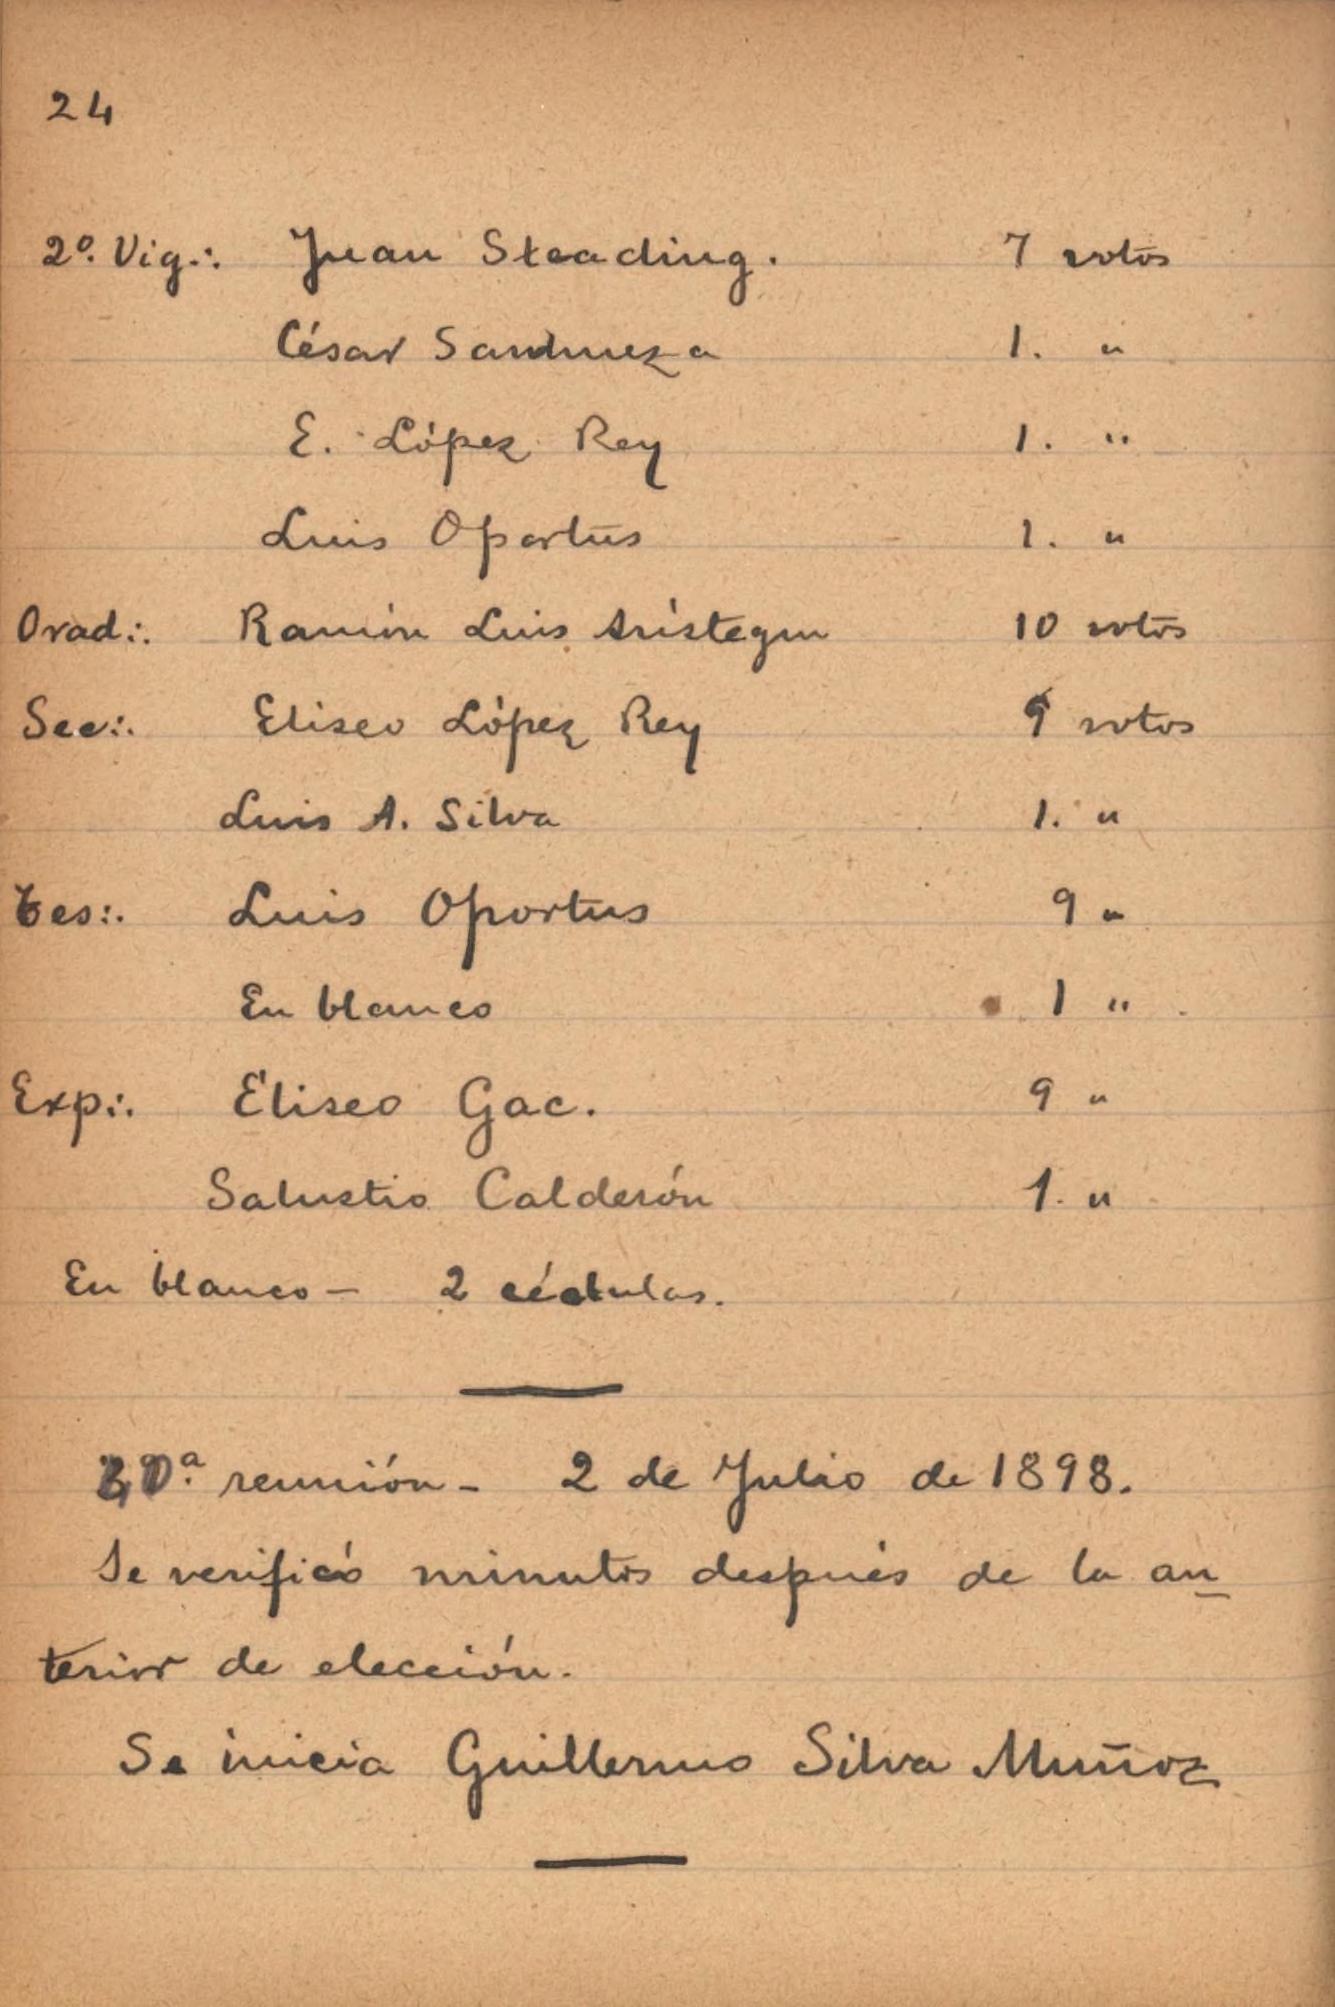 24
2º. Vig∴ Juan Steading. 7 votos
César Sanhueza 1. "
E. López Rey 1. "
Luis Oportus 1. "
Orad∴ Ramón Luis Arístegui 10 votos
Sec∴ Eliseo López Rey 9 votos
Luis A. Silva 1. "
Tes∴ Luis Oportus 9 "
En blanco 1 "
Exp∴ Eliseo Gac. 9 "
Salustio Calderón 1. "
En blanco — 2 cédulas.
reunión - 2 de Julio de 1898.
Se verificó minutos después de la an
terior de elección.
Se inicia Guillermo Silva Muñoz